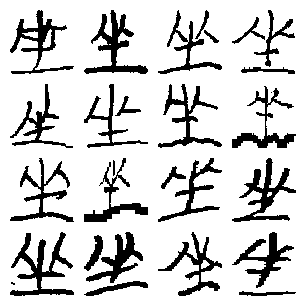 坐 坐 坐 坐
坐 坐 坐 坐
坐 坐 坐 坐
坐 坐 坐 坐